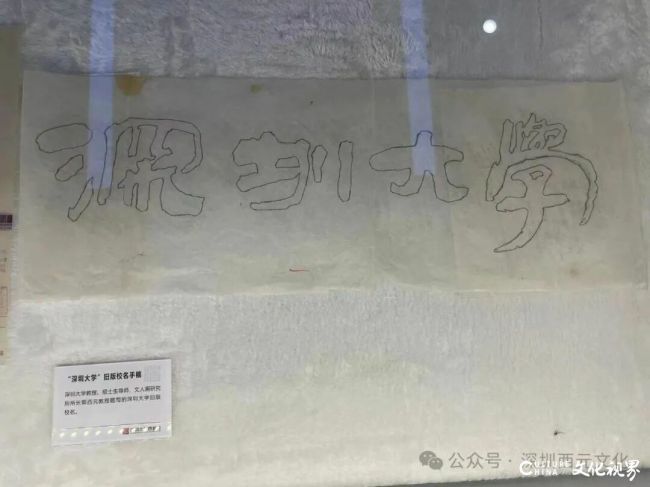 深圳大學
“深圳大学”旧版校名手稿
深圳大学教授、硕士生导师、文人画研究
所所长郭西元教授题写的深圳大学旧版
校名。
公众号·深圳西元文化
CULTURE CHINA 文化视界